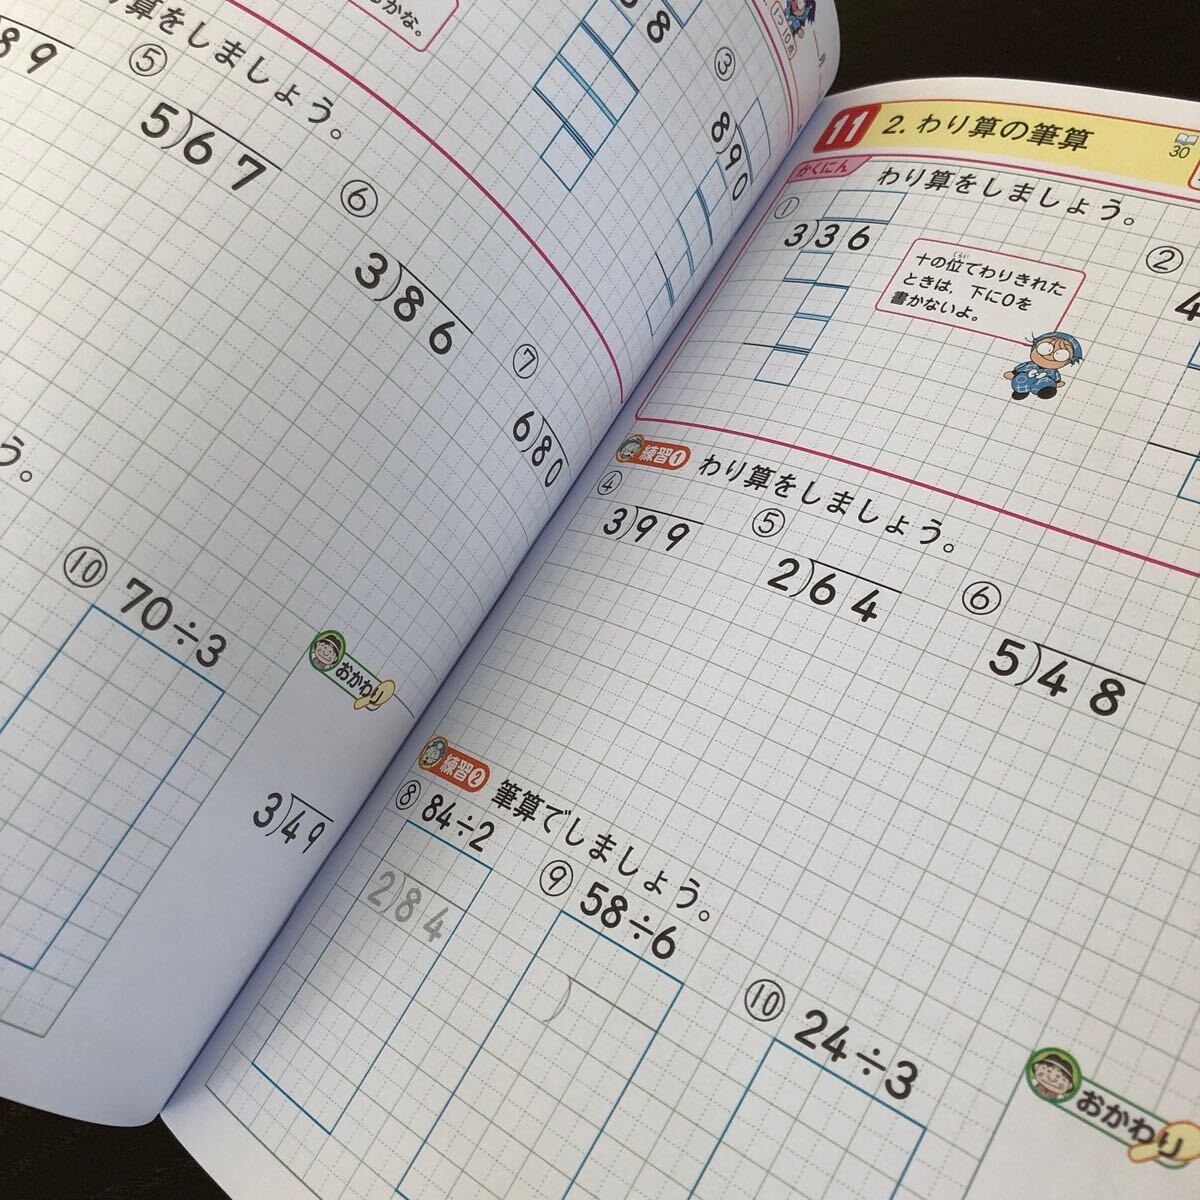 かな。
算をしましょう。
89
⑤
5)67
⑥
3)86
⑦
6)80
8
③
8)90
1つ10点
う。
⑩ 70÷3
おかわり
3)49
11 2. わり算の筆算
30
かくにん わり算をしましょう。
①
3)36
十の位でわりきれた
くらい
ときは、下に0を
書かないよ。
②
4
練習1 わり算をしましょう。
④
3)99
⑤
2)64
⑥
5)48
練習2 筆算でしましょう。
⑧ 84÷2
2)84
⑨ 58÷6
⑩ 24÷3
おかわり